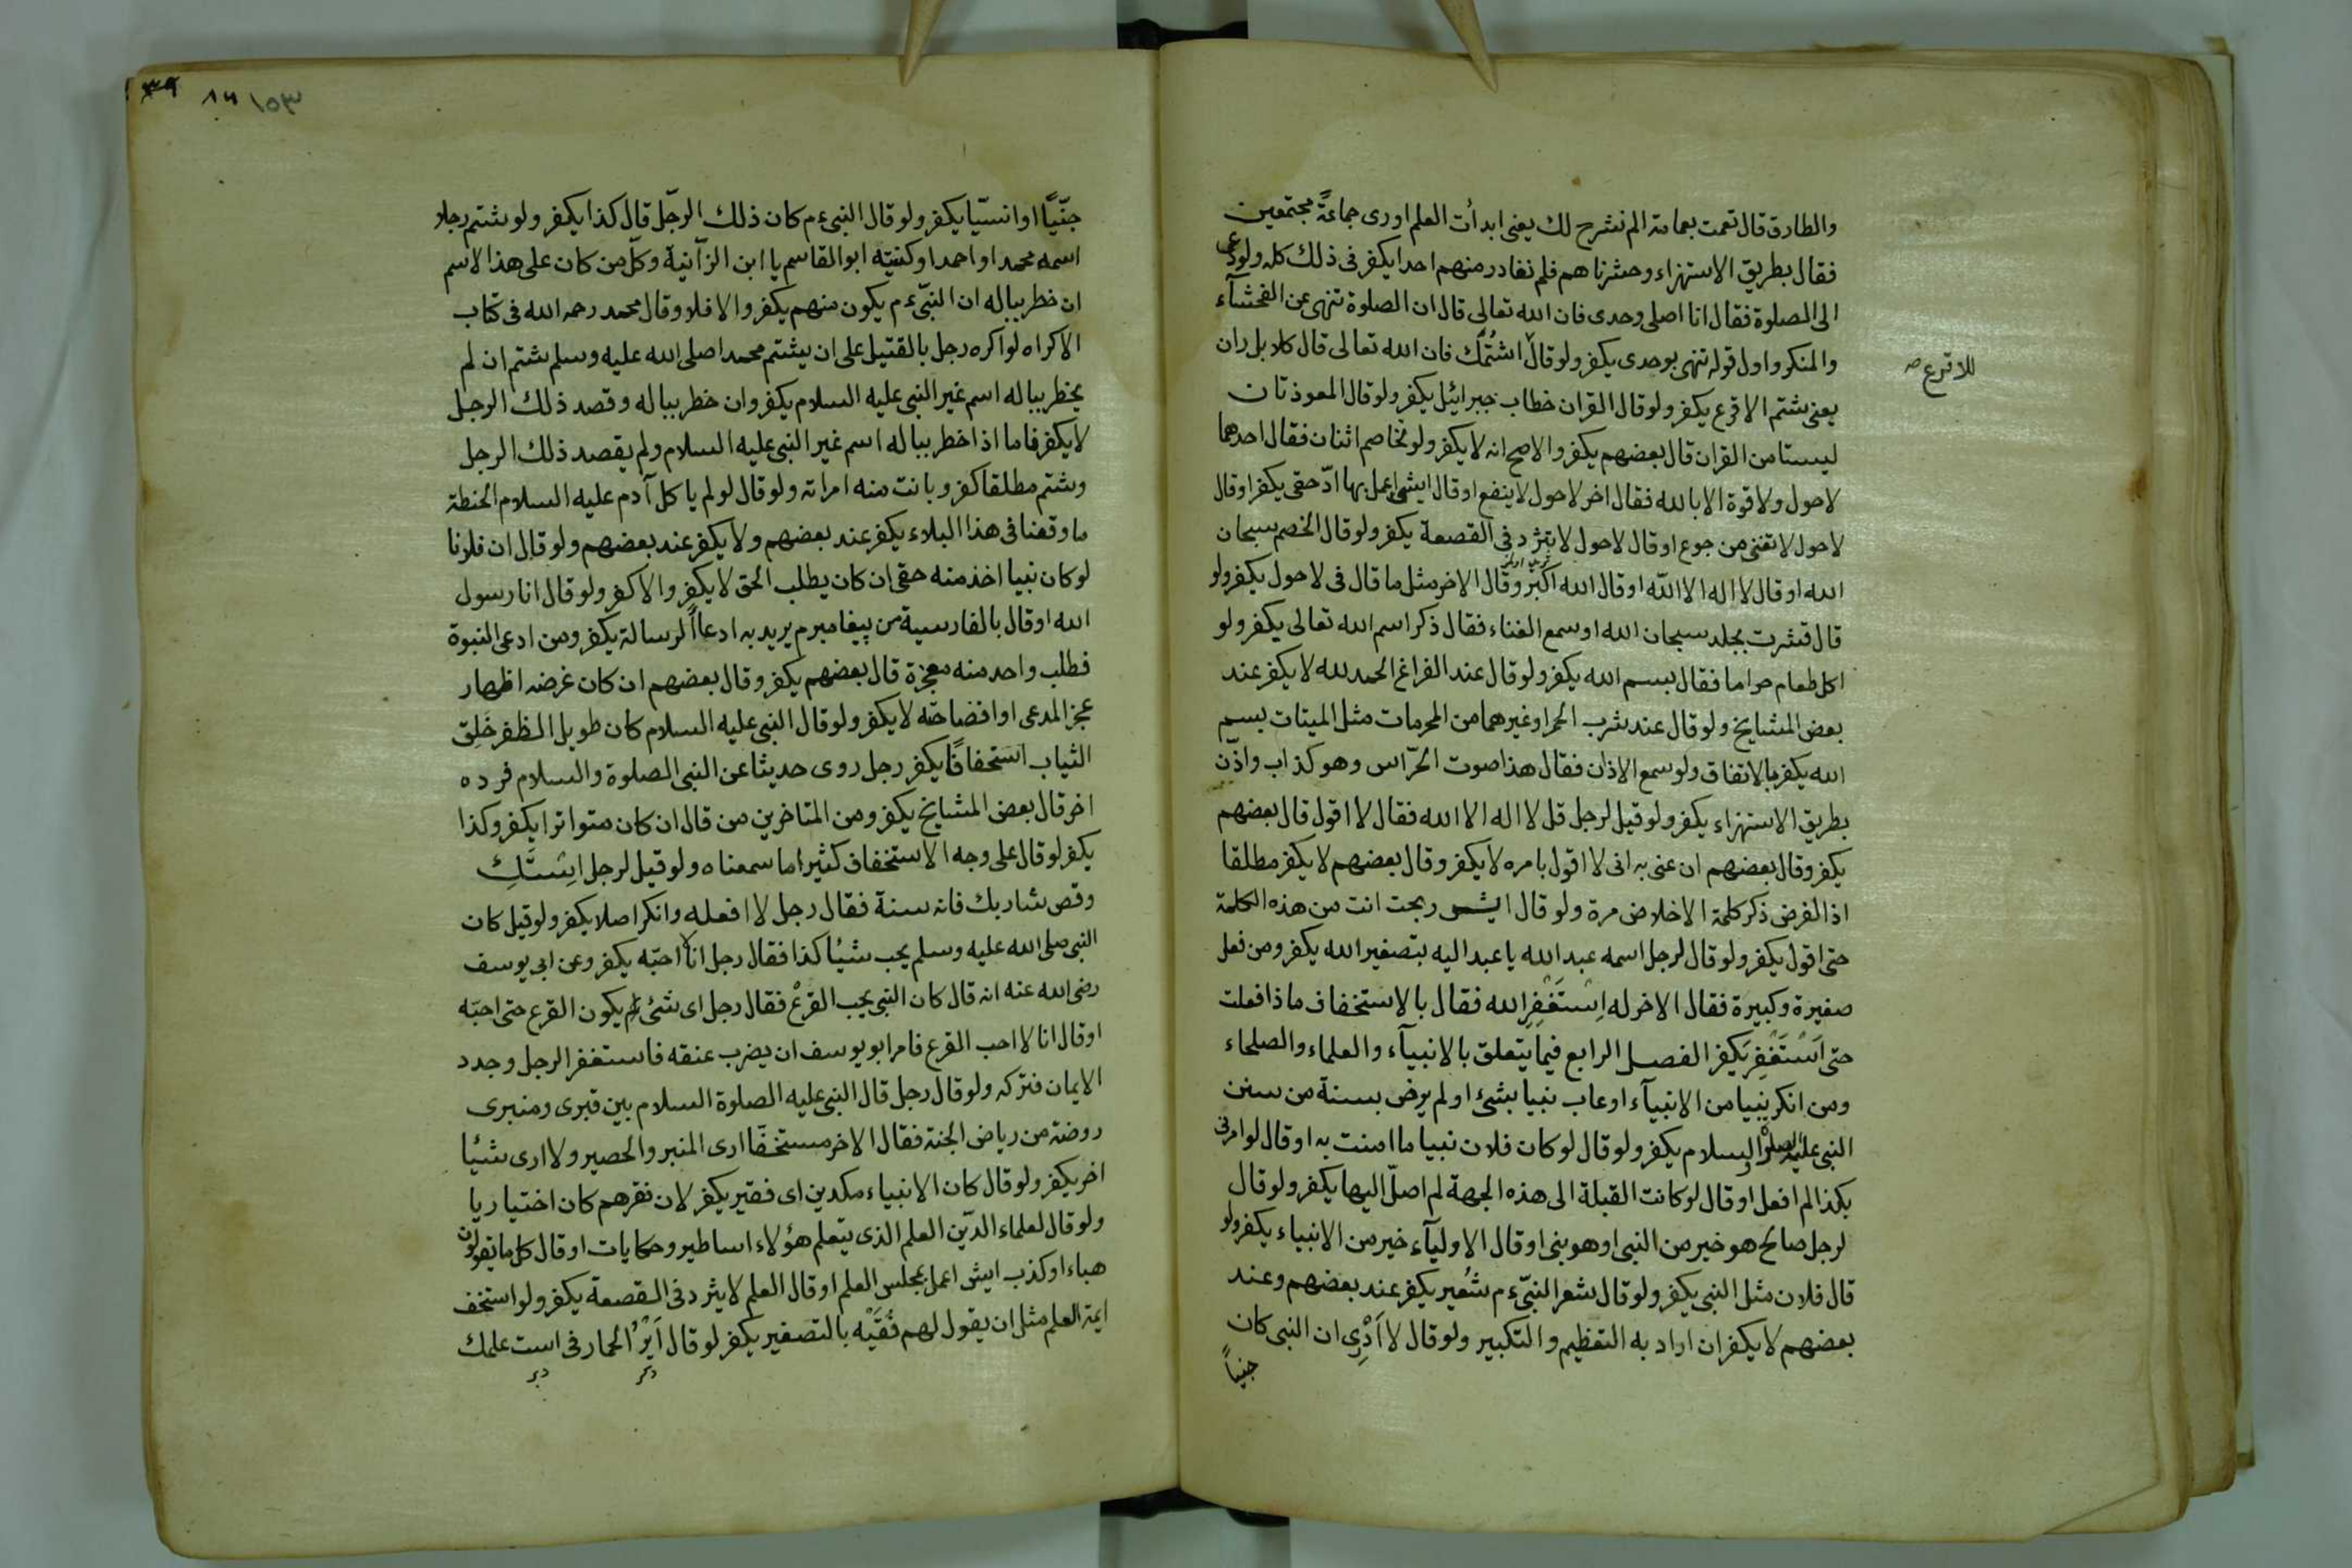 والطارق قال تعمت بعمامة الم نشرح لك يعنى ابدأت العلم او رى جماعةً مجتمعين
فقال بطريق الاستهزاء وحشرناهم فلم نغادر منهم احدا يكفر فى ذلك كله ولو دعى
الى الصلوة فقال انا اصلى وحدى فان الله تعالى قال ان الصلوة تنهى عن الفحشآء
والمنكر واول قوله تنهى بوحدى يكفر ولو قال اشتمك فان الله تعالى قال كلا بل ران
للاقرع صح
يعنى شتم الاقرع يكفر ولو قال القران خطاب جبرائيل يكفر ولو قال المعوذتان
ليستا من القران قال بعضهم يكفر والاصح انه لا يكفر ولو تخاصم اثنان فقال احدهما
لا حول ولا قوة الا بالله فقال اخر لا حول لا ينفع او قال ايش اعمل بها ادّ حقى يكفر او قال
لا حول لا تغنى من جوع او قال لا حول لا يثرد فى القصعة يكفر ولو قال الخصم سبحان
الله او قال لا اله الا الله او قال الله اكبر وقال الاخر مثل ما قال فى لا حول يكفر ولو
قال قشرت بجلد سبحان الله او سمع الغناء فقال ذكر اسم الله تعالى يكفر ولو
اكل طعام حراما فقال بسم الله يكفر ولو قال عند الفراغ الحمد لله لا يكفر عند
بعض المشايخ ولو قال عند شرب الخمر او غيرهما من المحرمات مثل الميتات بسم
الله يكفر بالاتفاق ولو سمع الاذان فقال هذا صوت الحرّاس وهو كذاب واذّن
بطريق الاستهزاء يكفر ولو قيل لرجل قل لا اله الا الله فقال لا اقول قال بعضهم
يكفر وقال بعضهم ان عنى به انى لا اقول بامره لا يكفر وقال بعضهم لا يكفر مطلقا
اذ الفرض ذكر كلمة الاخلاص مرة ولو قال ايش ربحت انت من هذه الكلمة
حتى اقول يكفر ولو قال لرجل اسمه عبد الله يا عبد اليه بتصغير الله يكفر ومن فعل
صغيرة وكبيرة فقال الاخر له اِسْتَغْفِرِ الله فقال بالاستخفاف ماذا فعلت
حتى اَسْتَغْفِرَ يكفر الفصل الرابع فيما يتعلق بالانبيآء والعلماء والصلحاء
ومن انكر نبيا من الانبيآء او عاب نبيا بشئ او لم يرض بسنة من سنن
النبى عليه الصلوة والسلام يكفر ولو قال لو كان فلان نبيا ما امنت به او قال لو امرنى
بكذا لم افعل او قال لو كانت القبلة الى هذه الجهة لم اصلّ اليها يكفر ولو قال
لرجل صالح هو خير من النبى او هو نبى او قال الاوليآء خير من الانبياء يكفر ولو
قال فلان مثل النبى يكفر ولو قال شعر النبىّ عم شُعير يكفر عند بعضهم وعند
بعضهم لا يكفر ان اراد به التعظيم والتكبير ولو قال لا اَدْرِى ان النبى كان
جنياً
جنّيّاً او انسيّا يكفر ولو قال النبى عم كان ذلك الرجل قال كذا يكفر ولو شتم رجلا
اسمه محمد او احمد او كنيته ابو القاسم يا ابن الزآنية وكلّ من كان على هذا الاسم
ان خطر بباله ان النبىّ عم يكون منهم يكفر والا فلا وقال محمد رحمه الله فى كتاب
الاكراه لو اكره رجل بالقتيل على ان يشتم محمد اصلى الله عليه وسلم شتم ان لم
يخطر بباله اسم غير النبى عليه السلام يكفر وان خطر بباله وقصد ذلك الرجل
لا يكفر فاما اذا خطر بباله اسم غير النبى عليه السلام ولم يقصد ذلك الرجل
وشتم مطلقا كفر وبانت منه امراته ولو قال لو لم ياكل آدم عليه السلام الحنطة
ما وقعنا فى هذا البلاء يكفر عند بعضهم ولا يكفر عند بعضهم ولو قال ان فلانا
لو كان نبيا اخذ منه حقى ان كان يطلب الحق لا يكفر والا كفر ولو قال انا رسول
الله او قال بالفارسية من پيغامبرم يريد به ادعاأ الرسالة يكفر ومن ادعى النبوة
فطلب واحد منه معجزة قال بعضهم يكفر وقال بعضهم ان كان غرضه اظهار
عجز المدعى او افضاحته لا يكفر ولو قال النبى عليه السلام كان طويل الظفر خَلِق
الثياب استخفافًا يكفر رجل روى حديثا عن النبى الصلوة والسلام فرده
اخر قال بعض المشايخ يكفر ومن المتاخرين من قال ان كان متواترا يكفر وكذا
يكفر لو قال على وجه الاستخفاف كثيرا ما سمعناه ولو قيل لرجل اِسْتَكِ
وقص شاربك فانه سنة فقال رجل لا افعله وانكر اصلا يكفر ولو قيل كان
النبى صلى الله عليه وسلم يحب شيئا كذا فقال رجل انا لا احبّه يكفر وعن ابى يوسف
رضى الله عنه انه قال كان النبى يحب القرع فقال رجل اى شئ يكون القرع حتى احبّه
او قال انا لا احب القرع فامر ابو يوسف ان يضرب عنقه فاستغفر الرجل وجدد
الايمان فتركه ولو قال رجل قال النبى عليه الصلوة السلام بين قبرى ومنبرى
روضة من رياض الجنة فقال الاخر مستخفّا ارى المنبر والحصير ولا ارى شيئا
اخر يكفر ولو قال كان الانبياء مكدين اى فقير يكفر لان فقرهم كان اختياريا
ولو قال لعلماء الدّين العلم الذى يتعلم هؤلاء اساطير وحكايات او قال كل ما تقولون
هباء او كذب ايش اعمل بمجلس العلم او قال العلم لا يثرد فى القصعة يكفر ولو استخف
ايمة العلم مثل ان يقول لهم فُقَيْه بالتصغير يكفر لو قال اَيْرُ الحمار فى است علمك
ذكر دبر